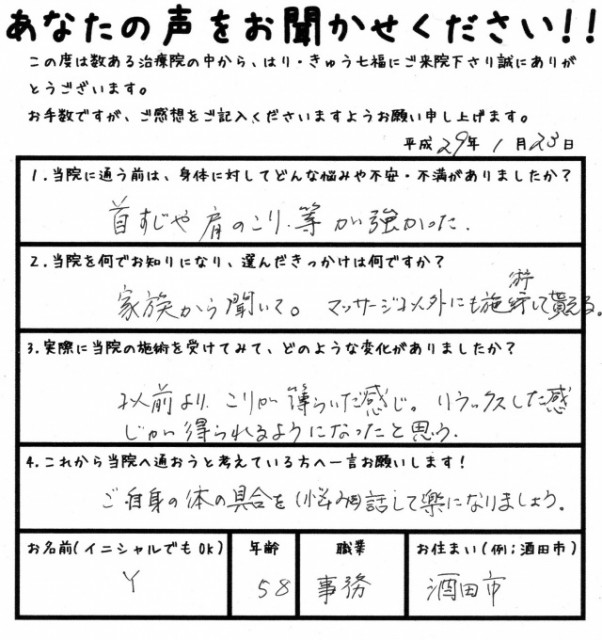 あなたの声をお聞かせください!!
この度は数ある治療院の中から、はり・きゅう七福にご来院下さり誠にありが
とうございます。
お手数ですが、ご感想をご記入くださいますようお願い申し上げます。
平成 29年 1月 23日
1.当院に通う前は、身体に対してどんな悩みや不安・不満がありましたか?
首すじや肩のこり、等が強かった.
2.当院を何でお知りになり、選んだきっかけは何ですか?
家族から聞いて。 マッサージ以外にも施術して貰える。
3.実際に当院の施術を受けてみて、どのような変化がありましたか?
以前より、こりが薄らいだ感じ。リラックスした感
じが得られるようになったと思う.
4.これから当院へ通おうと考えている方へ一言お願いします!
ご自身の体の具合を(悩み)話して楽になりましょう。
お名前(イニシャルでもOK) 年齢 職業 お住まい(例;酒田市)
Y 58 事務 酒田市